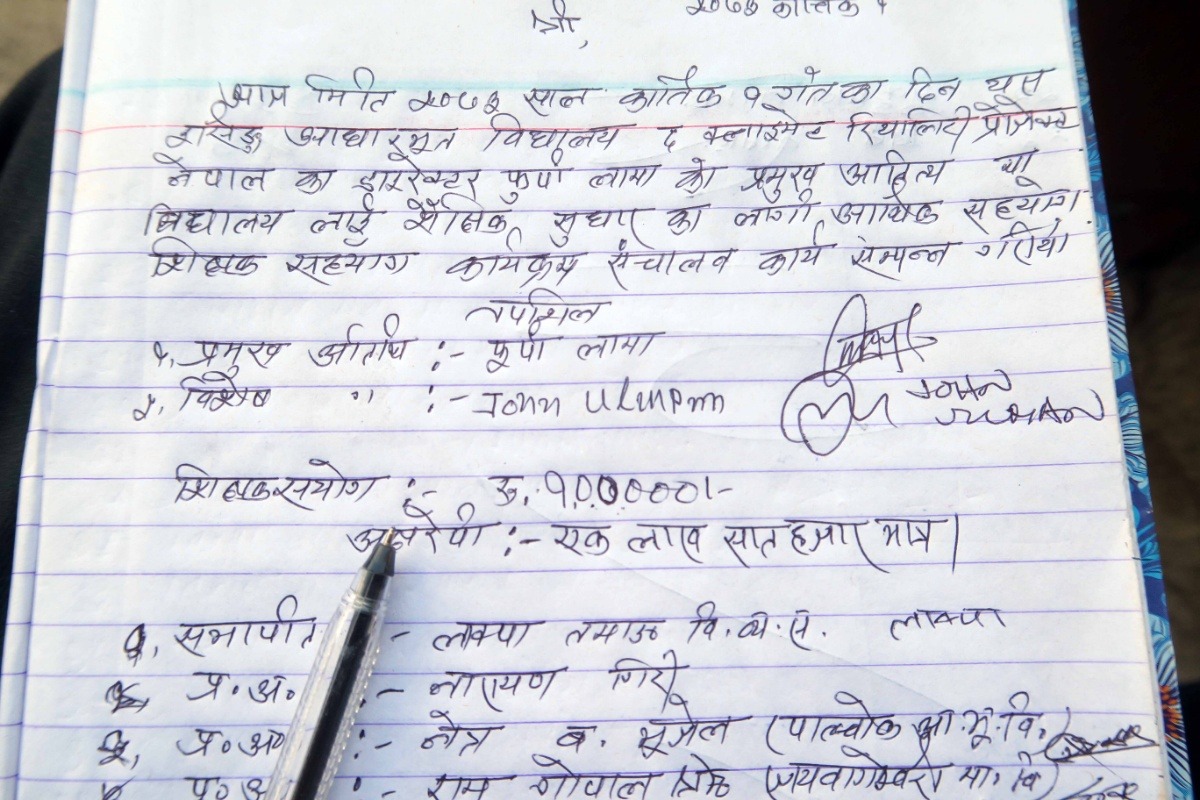 श्री, २०७५ कार्तिक १
आज मिति २०७५ साल कार्तिक १ गतेका दिन यस
आधारभूत विद्यालय द क्लाइमेट रियालिटी प्रोजेक्ट
नेपाल का डाइरेक्टर फुर्पा लामा को प्रमुख आतित्य मा
विद्यालय लाई शैक्षिक सुधार का लागी आर्थिक सहयोग
शिक्षक सहयोग कार्यक्रम संचालन कार्य संम्पन्न गरियो
तपसिल
१. प्रमुख अतिथि :- फूर्पा लामा
२. विशेष " :- John
JOHN
शिक्षक सयोग :- रू. १०७०००।-
अक्षरेपी :- एक लाख सात हजार मात्र।
१. सभापति :- लाक्पा तमाङ वि.व्य.स. लाक्पा
प्र.अ. :- नारायण गिरी
प्र.अ. :- नेत्र ब. भूजेल (पाल्चोक आ.भू.वि.)
प्र.अ. :- राम गोपाल (जयवागेश्वरी मा. वि)